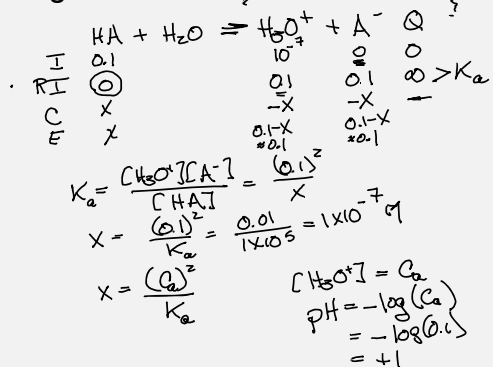 ?
HA + H₂O ⇌ H₃O⁺ + A⁻ Q
I 0.1 10⁻⁷ 0 0
RI 0 0.1 0.1 ∞ > Kₐ
C X -X -X
E X 0.1-X 0.1-X
≈0.1 ≈0.1
Kₐ = [H₃O⁺][A⁻] / [HA] = (0.1)² / X
X = (0.1)² / Kₐ = 0.01 / 1X10⁵ = 1X10⁻⁷ M
X = (Cₐ)² / Kₐ
[H₃O⁺] = Cₐ
pH = -log(Cₐ)
= -log(0.1)
= +1